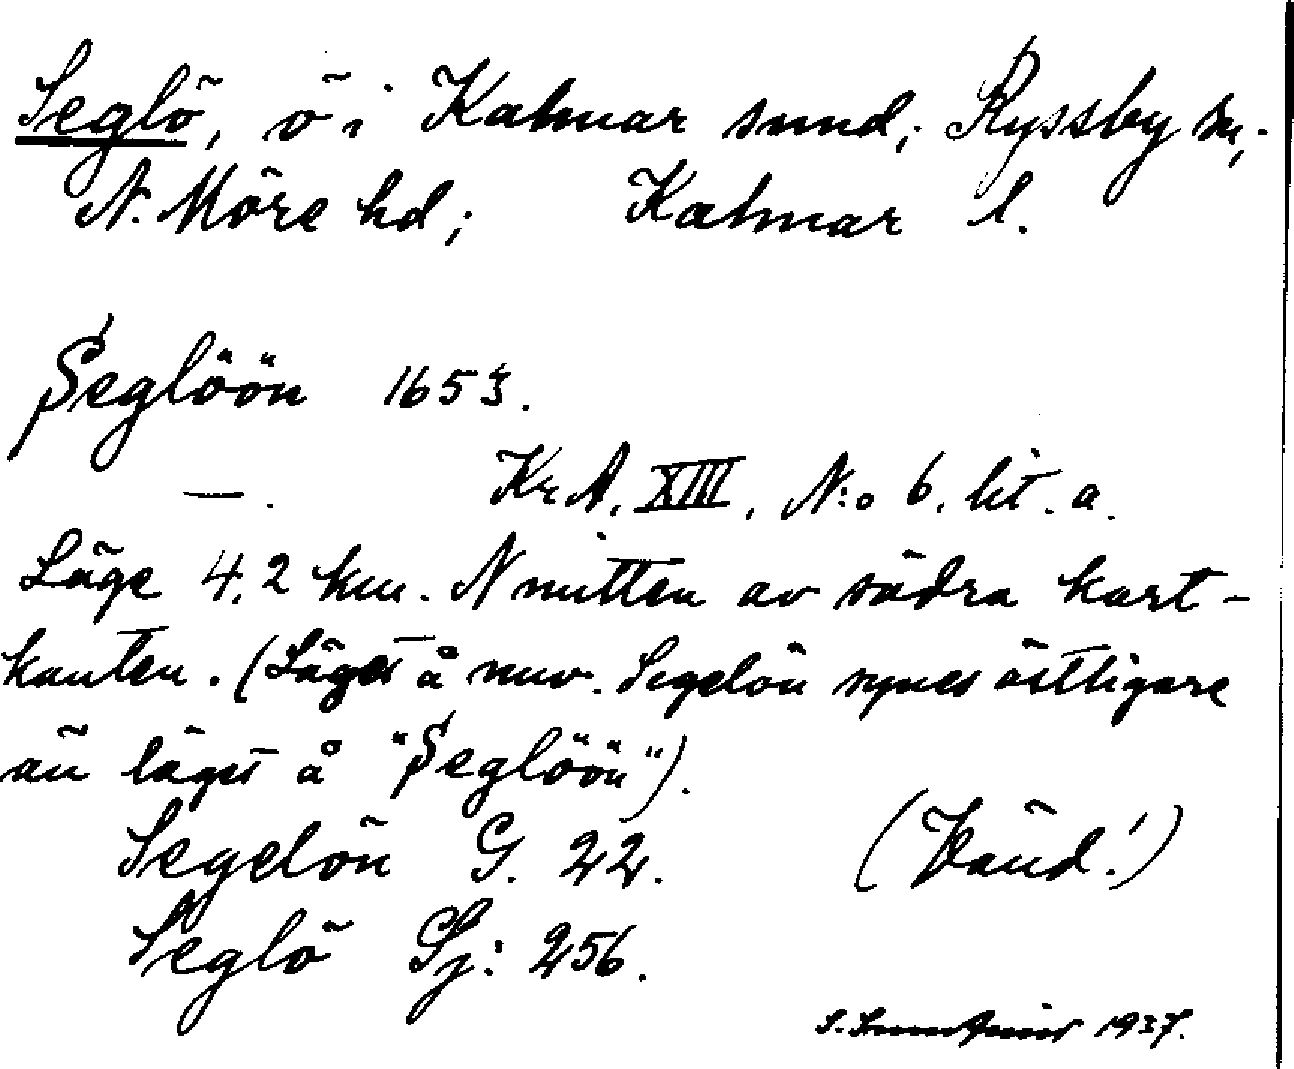 Seglö, ö i Kalmar sund; Ryssby sn;
N. Möre hd; Kalmar l.
Seglöön 1653.
—. KrA. XIII, N:o 6. lit. a.
Läge 4,2 km. N mitten av södra kart-
kanten. (Läget å nuv. Segelön synes östligare
än läget å "Seglöön").
Segelön G. 22. (Vänd!)
Seglö Sj: 256.
S. 1937.